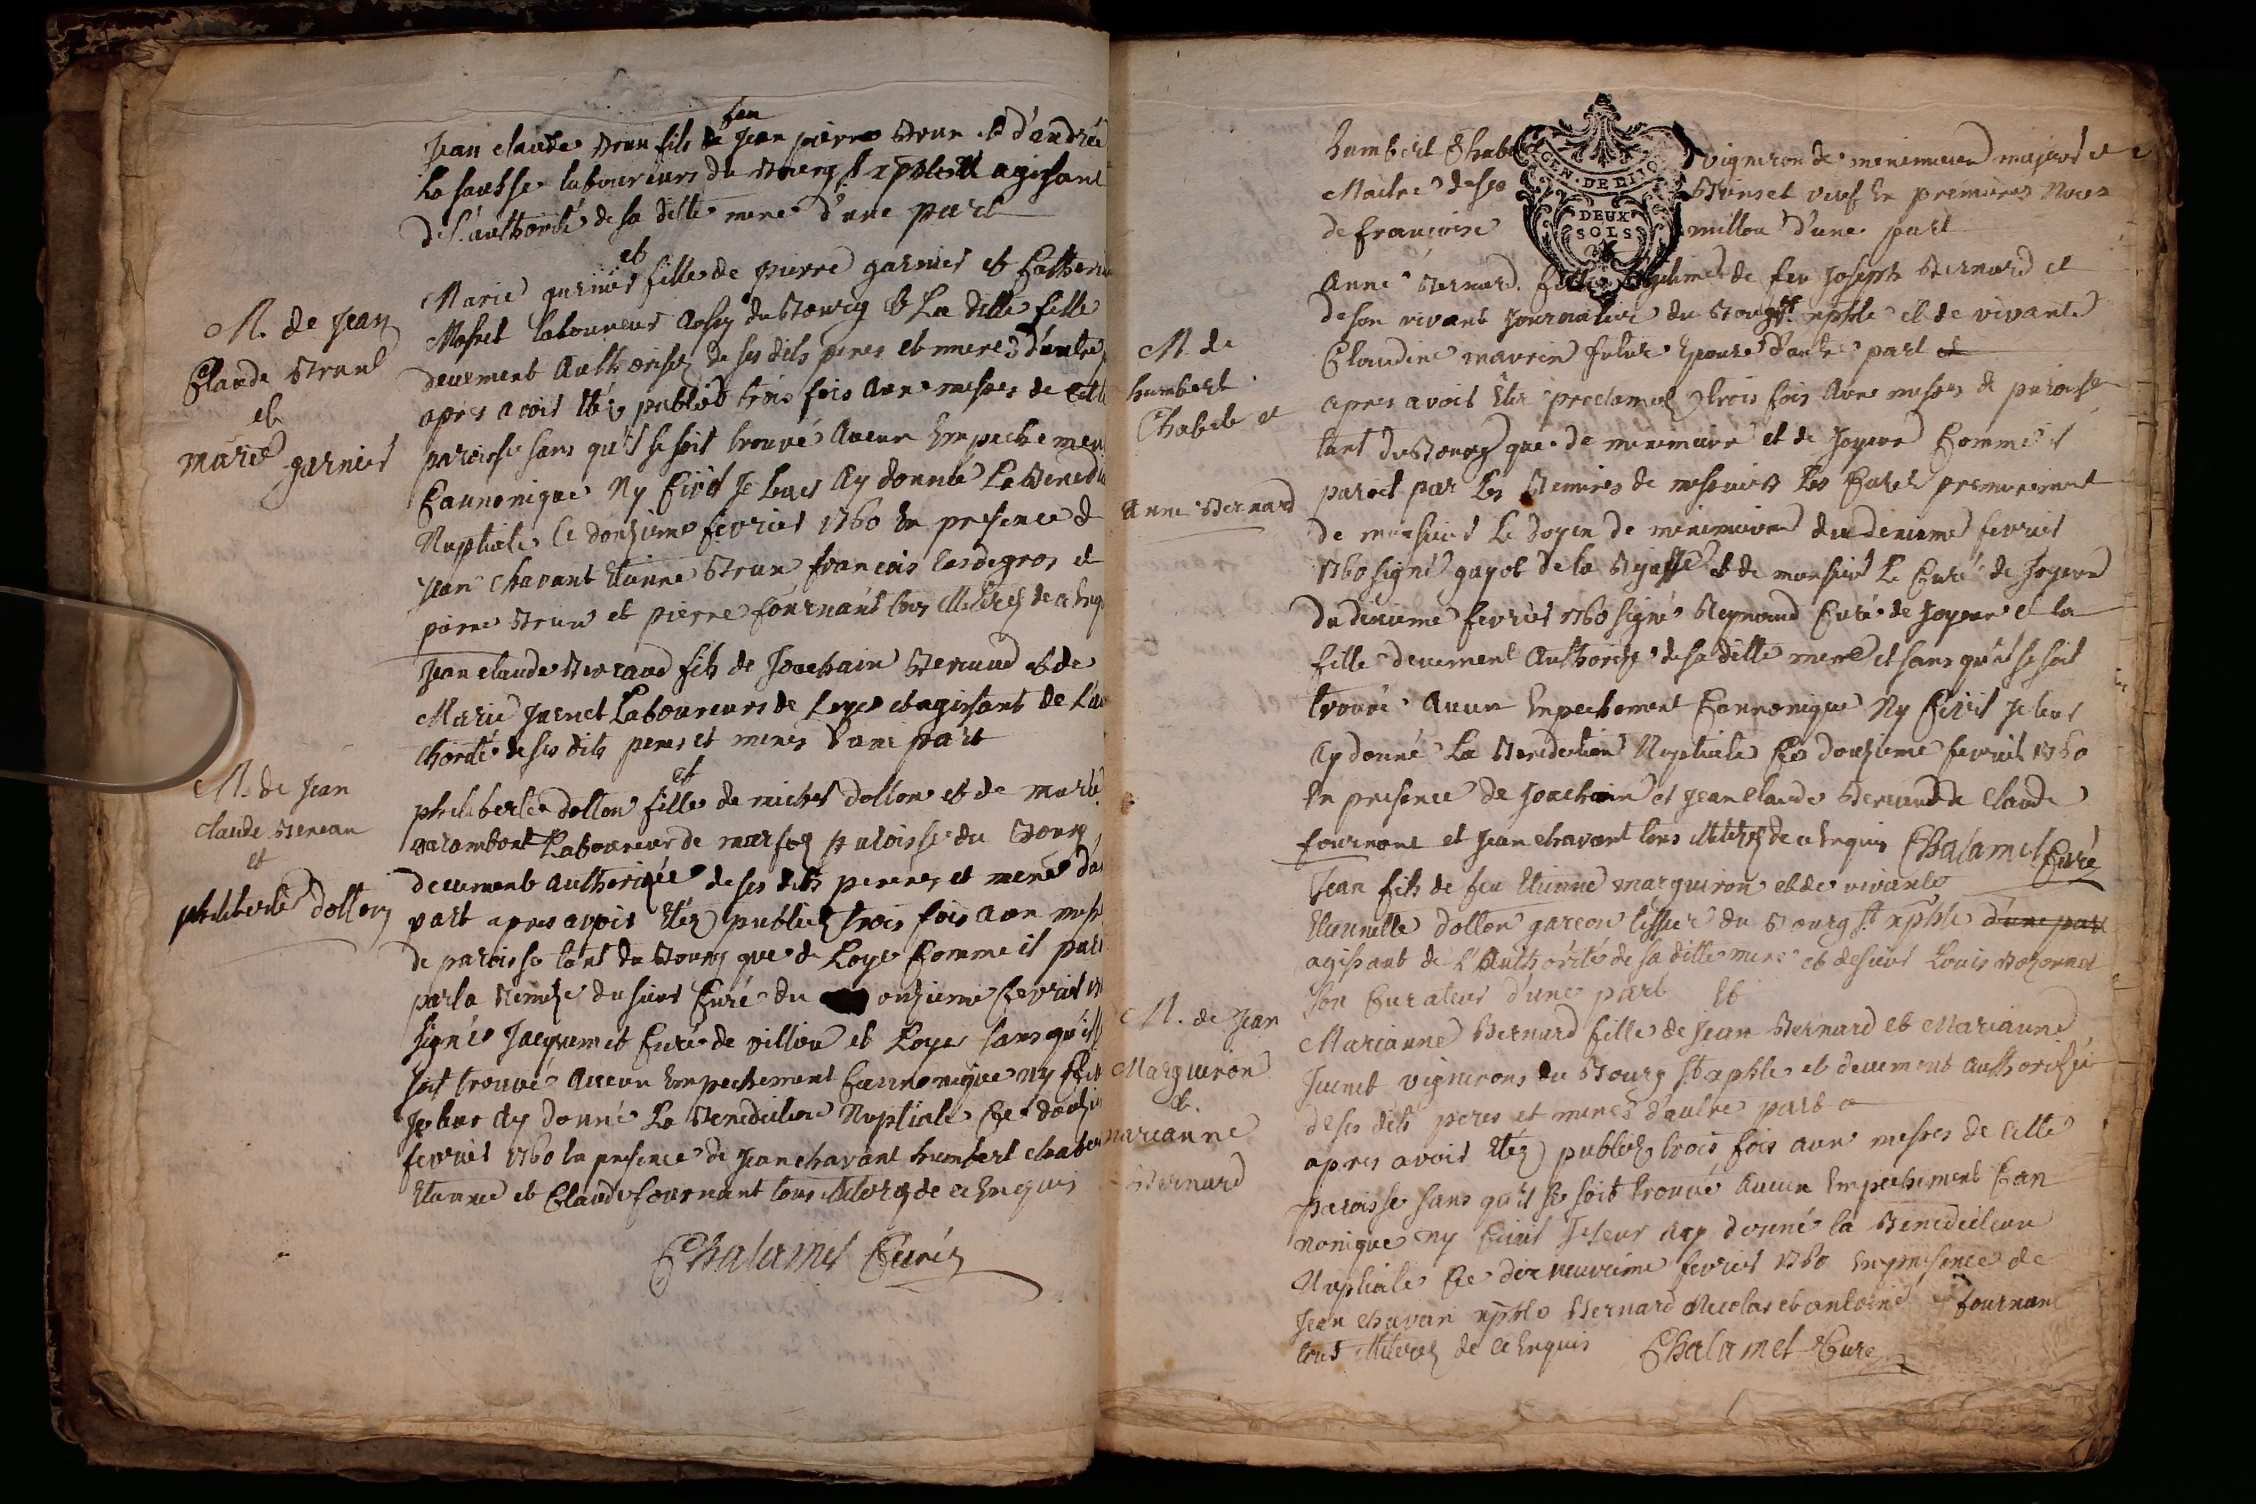 feu
Jean claude Brun fils de Jean pierre Brun et d'andrée
La sausse laboureurs du Bourg st xphle agissant
de l'authorité de sa ditte mere d'une part
et
Marie garnier fille de pierre garnier et Catherine
Mofret laboureurs aussy du Bourg et La ditte fille
deuement Authorisez de ses dits peres et meres d'autre
apres avoir étéz publiéz trois fois aux messes de cette
paroisse sans qu'il se soit trouvé Aucun Empechemen
Cannonique Ny Civil Je leurs Ay donnée La Benedi
Nuptiale Ce douzieme fevrier 1760 En presence d
Jean Chavant Etienne Brun francois Lesdegros et
pierre Brun et pierre fournant tous illitérez de ce Enq
M. de Jean
Claude Brun
et
marie garnier
Jean claude Beraud fils de Joachain Beraud et de
Marie Juenet Laboureurs de Loye et agissant de L'au
thorité de ses dits peres et meres d'une part
et
philiberte dollon fille de michel dollon et de marie
garambont Laboureur de marfoz paroisse du Bourg
deuement authorizée de ses dits peres et mere d'au
part apres avoir Etéz publiéz trois fois aux messe
de paroisse tant du Bourg que de Loye Comme il paro
par la Remise du sieur Curé du onzieme fevrier 17
signé Jacquemet Curé de villon et Loye sans qu'il se
soit trouvé Aucun Empechement Cannonique ny Civil
Je leur Ay donné La Benediction Nuptiale Ce douzie
fevrier 1760 En presence de Jean chavant humbert chaber
Etienne et Claude fournant tous illiterez de ce Enquis
Chalamet Curé
M. de Jean
claude Beraau
et
philiberte dollon
humbert Chab vigneron de menemuer majeur et
Maitre de ses Brinset veuf En premieres Noces
de francoise millon d'une part
Anne Bernard fille legitime de feu Joseph Bernard et
de son vivant Journalier du Bourg st xphle et de vivante
Claudine maurin future Epouse d'autre part
apres avoir Eté proclaméz trois fois Aux messes de paroisse
tant du Bourg que de menemuer et de Joyeur Comme il
paroit par Les Remises de messieurs Les Curés premierement
de monsieur Le doyen de menemuer du deuxieme fevrier
1760 signé guyot de la Bysse et de monsieur Le Curé de Joyeur
du deuxieme fevrier 1760 signé Reymond Curé de Joyeur et la
fille deuement Authorizé de sa ditte mere et sans qu'il se soit
trouvé Aucun Empechement Cannonique Ny Civil Je leur
Ay donné La Benediction Nuptiale Ce douzieme fevrier 1760
En presence de Joachain et Jean Claude Beraud de Claude
fournant et Jean chavant tous illiterez de ce Enquis Chalamet Curé
M. de
humbert
Chaber et
Anne Bernard
GEN. DE DIJON
DEUX
SOLS
Jean fils de feu Etienne marguiron et de vivante
Etiennette dollon garcon tissier du Bourg st xphle d'une part
agissant de L'Authorité de sa ditte mere et de sieur Louis Bozonnet
son Curateur d'une part Et
Marianne Bernard fille de Jean Bernard et Marianne
Juenet vignerons du Bourg st xphle et deuement authorisée
de ses dits peres et meres d'autre part
apres avoir Etéz publiéz trois fois aux messes de cette
paroisse sans qu'il se soit trouvé Aucun Empechement Can
nonique ny Civil Je leur Ay donné la Benediction
Nuptiale Ce dix neuvieme fevrier 1760 En presence de
Jean chavan xphle Bernard Nicolas et antoine fournant
tous illiterez de ce Enquis Chalamet Curé
M. de Jean
Marguiron
et
marianne
Bernard